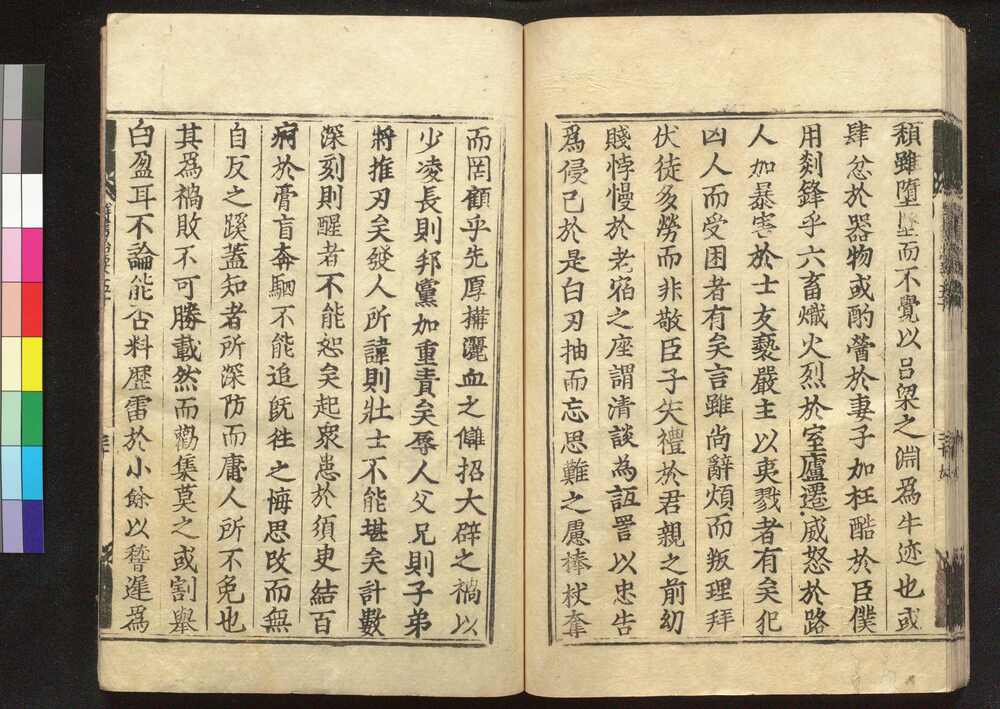 頹雖墮壑而不覺以呂梁之淵爲牛迹也或
肆忿於器物或酌醟於妻子加枉酷於臣僕
用剡鋒乎六畜熾火烈於室廬遷威怒於路
人加暴害於士友褻嚴主以夷戮者有矣犯
凶人而受困者有矣言雖尚辭煩而叛理拜
伏徒多勞而非敬臣子失禮於君親之前幼
賤悖慢於老宿之座謂清談為詆詈以忠告
爲侵己於是白刃抽而忘思難之慮棒杖奪
而罔顧乎先厚搆灑血之讎招大辟之禍以
少凌長則邦黨加重責矣辱人父兄則子弟
將推刃矣發人所諱則壯士不能堪矣計數
深刻則醒者不能恕矣起衆患於須臾結百
痾於膏肓奔駟不能追旣徃之悔思改而無
自反之蹊蓋知者所深防而庸人所不免也
其爲禍敗不可勝載然而勸集莫之或割舉
白盈耳不論能否料瀝霤於小餘以稽遲爲